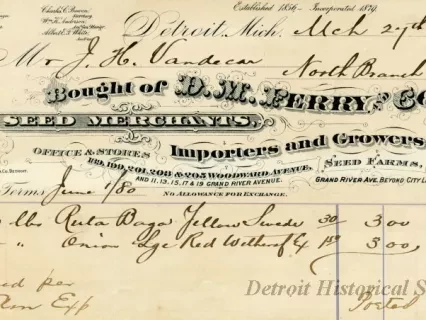 Established 1856 - Incorporated 1879.
Charles C. Bowen,
Secretary
Wm. K. Anderson,
Albert E. F. White,
Detroit, Mich. Mch 27th
Mr J. H. Vandecar
North Branch
Bought of D. M. FERRY AND CO
SEED MERCHANTS,
Importers and Growers
OFFICE & STORES
189, 199, 201, 203 & 205 WOODWARD AVENUE,
AND 11, 13, 15, 17 & 19 GRAND RIVER AVENUE.
SEED FARMS,
GRAND RIVER AVE. BEYOND CITY LI
Terms June 1/80
NO ALLOWANCE FOR EXCHANGE.
lbs Ruta Baga Yellow Swede 30 3 00
" Onion Lge Red Wethersf 3 00
per
Am Exp
Posted
Detroit Historical S